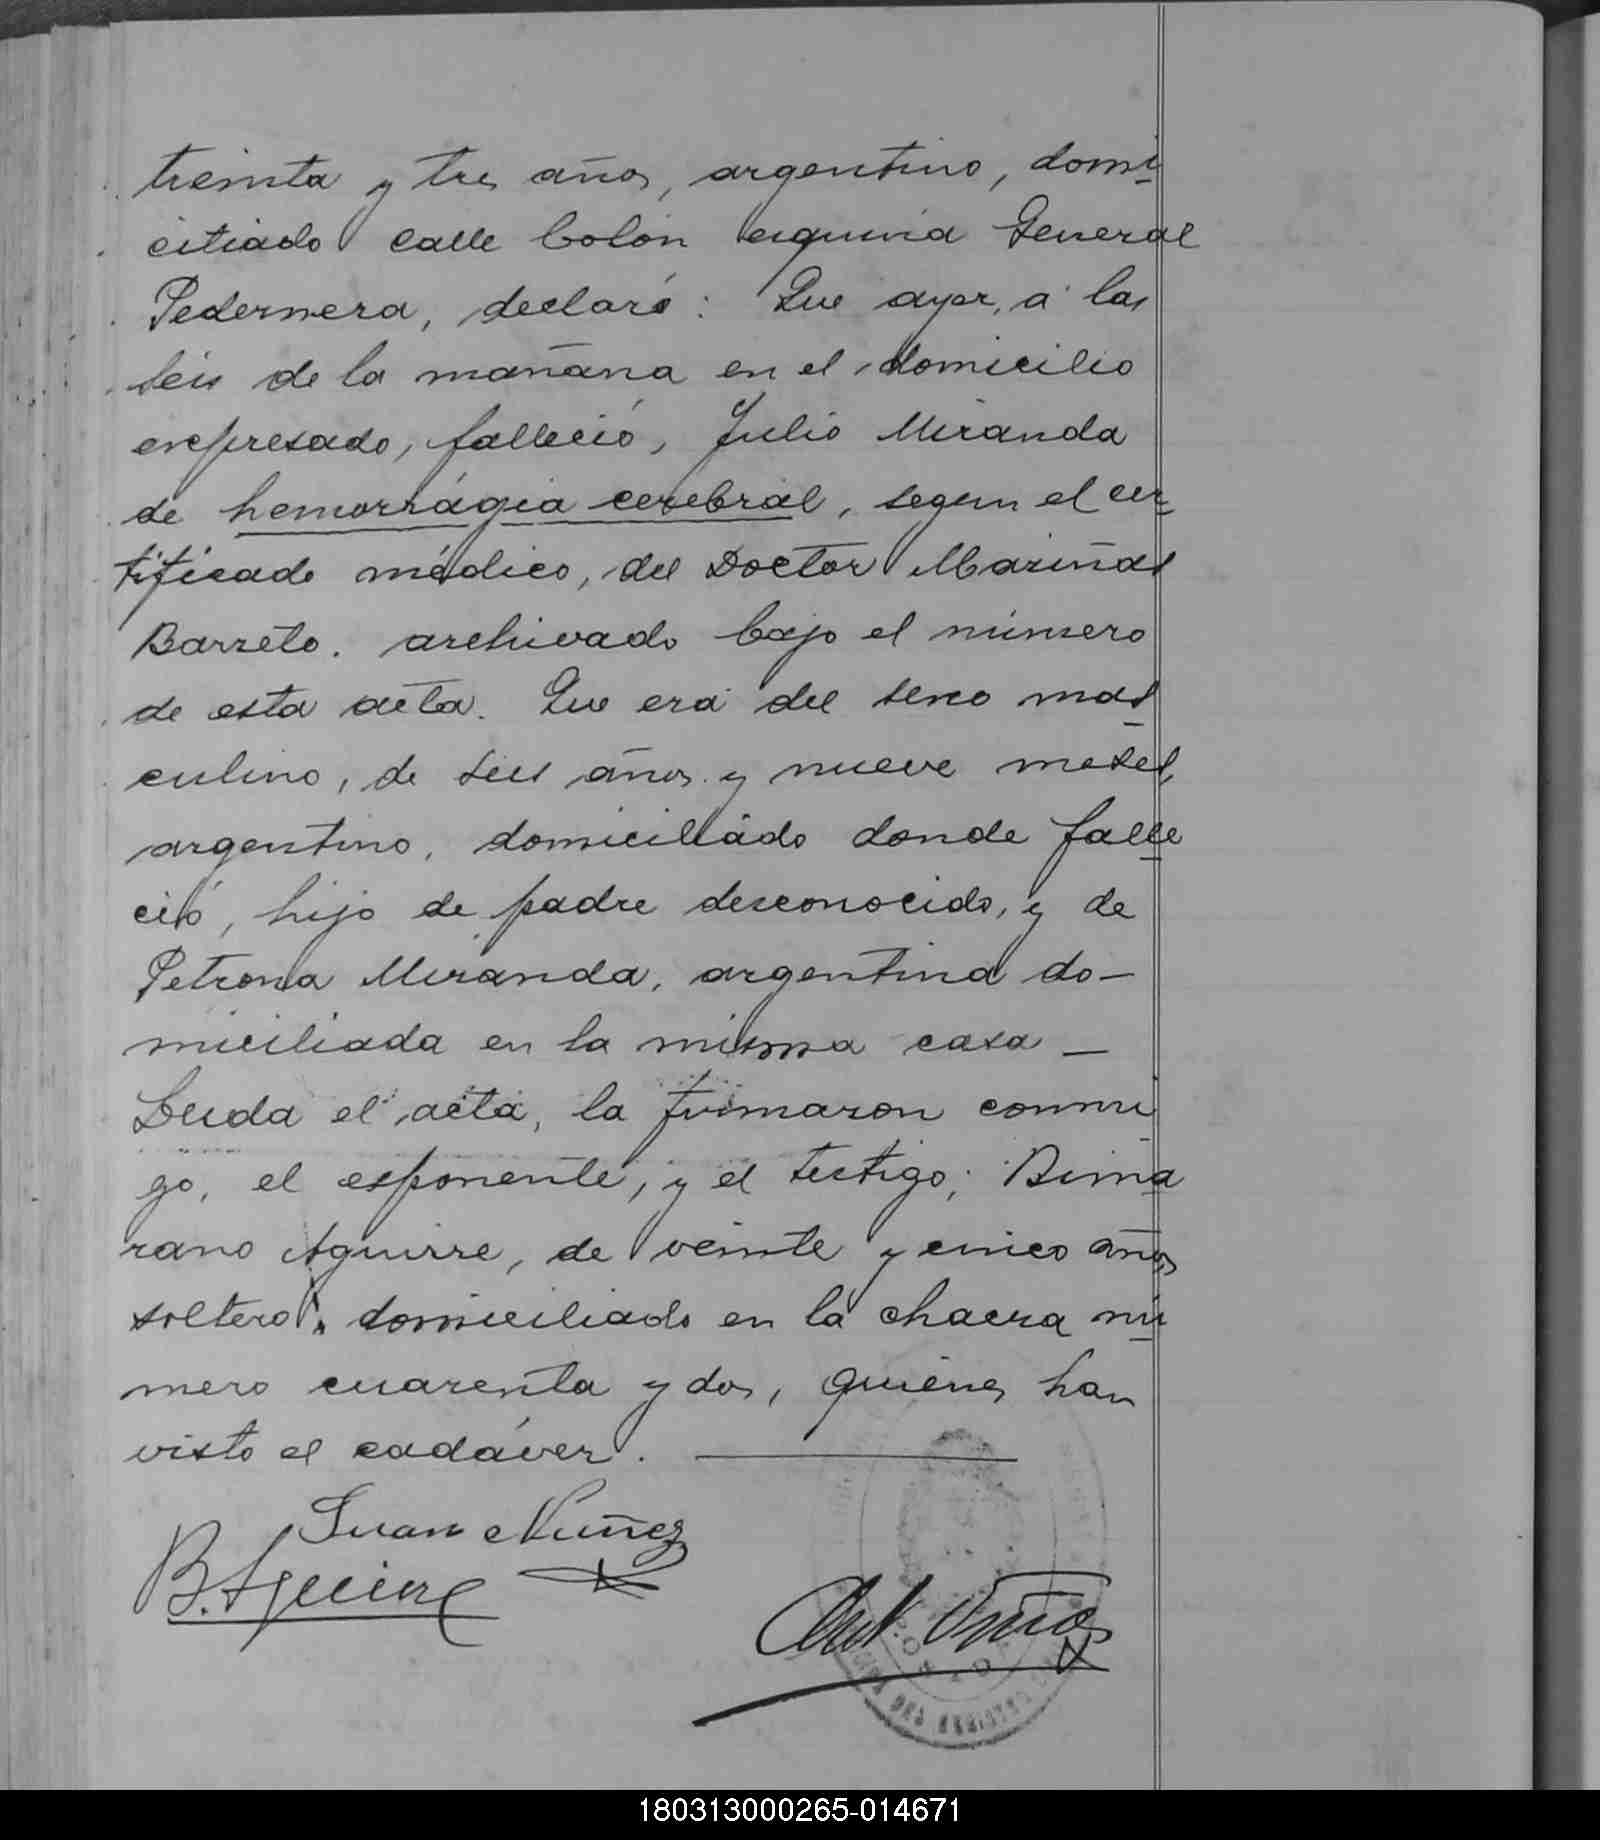 treinta y tres años, argentino, domi
ciliado calle Colón esquina General
Pedernera, declaró: Que ayer, a las
seis de la mañana en el domicilio
expresado, falleció, Julio Miranda
de hemorrágia cerebral, segun el cer
tificado médico, del Doctor Mariñas
Barreto. archivado bajo el número
de esta acta. Que era del sexo mas
culino, de seis años y nueve meses,
argentino, domiciliado donde falle
ció, hijo de padre desconocido, y de
Petrona Miranda, argentina do-
miciliada en la misma casa —
Leida el acta, la firmaron conmi
go, el esponente, y el testigo; Bima
rano Aguirre, de veinte y cinco años
soltero, domiciliado en la chacra nú
mero cuarenta y dos, quienes han
visto el cadáver.
Juan Nuñez
B. Aguirre
DEL REGISTRO
180313000265-014671